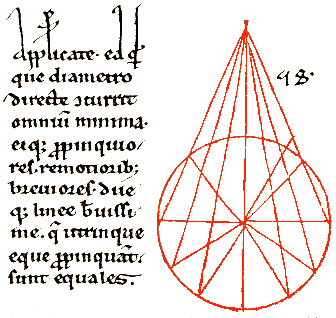 applicate. ea q̄
que diametro
directe ɔcurrit
omniū minima.
eiq; ꝓpinquio-
res. remotiorib;
breuiores. due
q; linee breuissi-
me. q̄ utrinque
eque ꝓpinquāt.
sunt equales.
98.